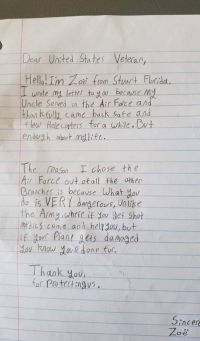 Dear United States Veteran,
Hello! I'm Zoë from Stuart Florida.
I wrote my letter to you because my
Uncle Served in the Air Force and
thankfully came back safe and
flew Helecopters for a while. But
enough about my life.
The reason I chose the
Air Force out of all the other
Branches is because What you
do is VERY dangerous, Unlike
the Army, where if you get shot
Medics come and help you, but
if your Plane gets damaged
you know your done for.
Thank you,
for Protecting us.
Sincere
Zoë